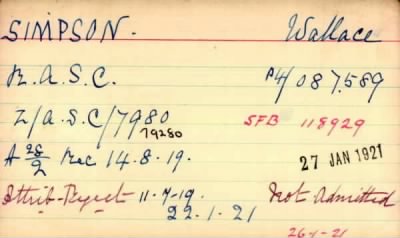 SIMPSON. Wallace
R.A.S.C. P4/087.589
Z/A.S.C/7980
79280 SFB 118929
A 28/2 Rec 14.8.19. 27 JAN 1921
Attrib-Reject 11-7-19. Not Admitted
22.1.21
26-1-21